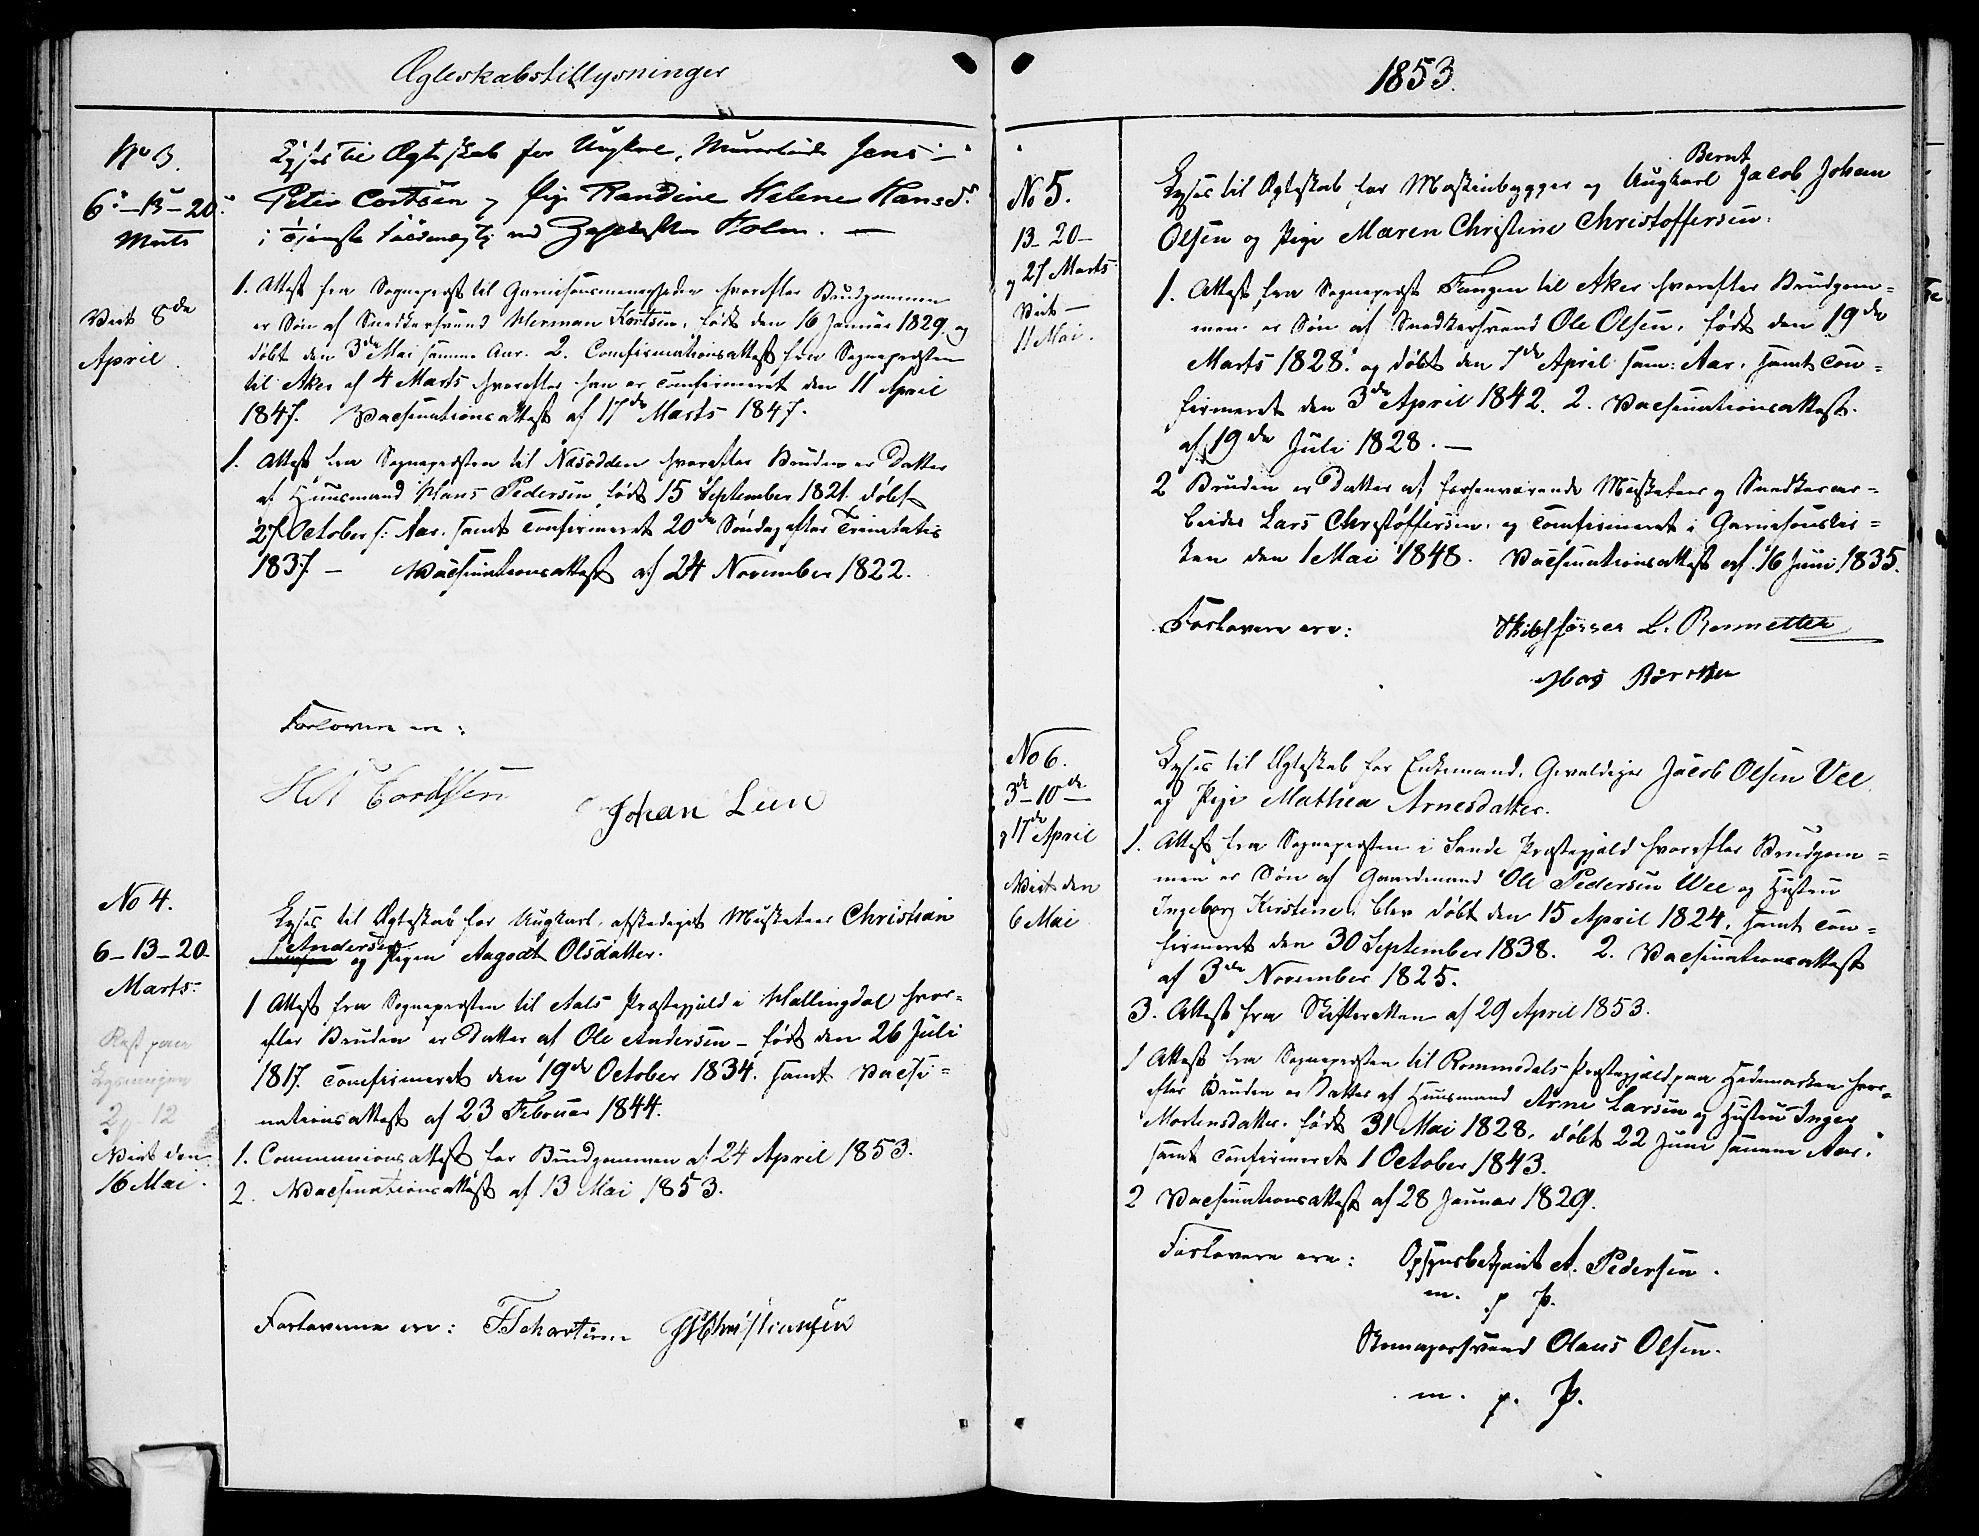 Ægteskabstillysninger
No 3.
6 – 13 – 20
Marts
Viet 8de
April.
Lyses til Ægteskab for Ungkarl, Jens
Peter Cortsen og Pige Randine Helene Hansd.
i Tjeneste ved Holm. –
1. Attest fra Sognepræst til Garnisonsmenigheden hvorefter Brudgommen
er Søn af Snedkersvend Herman Kortsen, født den 16 Januar 1829 og
døbt den 3de Mai samme Aar. 2. Confirmationsattest fra Sognepræsten
til Aker af 4 Marts hvorefter han er confirmeret den 11 April
1847. Vaccinationsattest af 17de Marts 1847.
1. Attest fra Sognepræsten til Næsodden hvorefter Bruden er Datter
af Huusmand Hans Pedersen, født 15 September 1821. døbt
27 October s. Aar, samt Confirmeret 20de Søndag efter Trinitatis
1837 – Vaccinationsattest af 24 November 1822.
Forlovere ere:
Cordtsen
Johan Lien
No 4.
6 – 13 – 20
Marts
Lysningen
2 12
Viet den
16 Mai.
Lyses til Ægteskab for Ungkarl, afskediget Musketeer Christian
Andersen
og Pigen Aagodt Olsdatter.
1 Attest fra Sognepræsten til Aals Præstegjeld i Hallingdal hvor-
efter Bruden er Datter af Ole Andersen – født den 26 Juli
1817. confirmeret den 19de October 1834. samt Vacci-
nationsattest af 23 Februar 1844.
1. Communionsattest for Brudgommen af 24 April 1853.
2. Vaccinationsattest af 13 Mai 1853.
Forloverne ere: Christiansen
1853.
No 5.
13 – 20 –
og 27 Marts
Viet –
11 Mai.
Bernt
Lyses til Ægteskab for Maskinbygger og Ungkarl Jacob Johan
Olsen og Pige Maren Christine Christoffersen.
1. Attest fra Sognepræst Fangen til Aker hvorefter Brudgom=
men er Søn af Snedkersvend Ole Olsen, født den 19de
Marts 1828. og døbt den 7de April sam: Aar, samt con=
firmeret den 3de April 1842. 2. Vaccinationsattest
af 19de Juli 1828. –
2 Bruden er Datter af forhenværende Musketeer og Snedkerar=
beider Lars Christoffersen, og confirmeret i Garnisonskir=
ken den 1 Mai 1848. Vaccinationsattest af 16 Juni 1835.
Forlovere ere: L. Bennetter
No 6.
3de – 10de –
og 17de April
Viet den
6 Mai
Lyses til Ægteskab for Enkemand, Gevaldiger Jacob Olsen Vee
og Pige Mathea Arnesdatter.
1. Attest fra Sognepræsten i Sande Præstegjeld hvorefter Brudgom=
men er Søn af Gaardmand Ole Pedersen Wee og Hustru
Ingeborg Kirstine, blev døbt den 15 April 1824, samt con=
firmeret den 30 September 1838. 2. Vaccinationsattest
af 3de November 1825.
3. Attest fra Skifteretten af 29 April 1853.
1 Attest fra Sognepræsten til Rommedals Præstegjeld paa Hedemarken hvor-
efter Bruden er Datter af Huusmand Arne Larsen og Hustru Inger
Mortensdatter, født 31 Mai 1828, døbt 22 Juni samme Aar,
samt Confirmeret 1 October 1843.
2 Vaccinationsattest af 28 Januar 1829.
Forlovere ere: Opsynsbetjent A. Pedersen.
m. p. P.
Skomagersvend Olaus Olsen.
m. p. P.